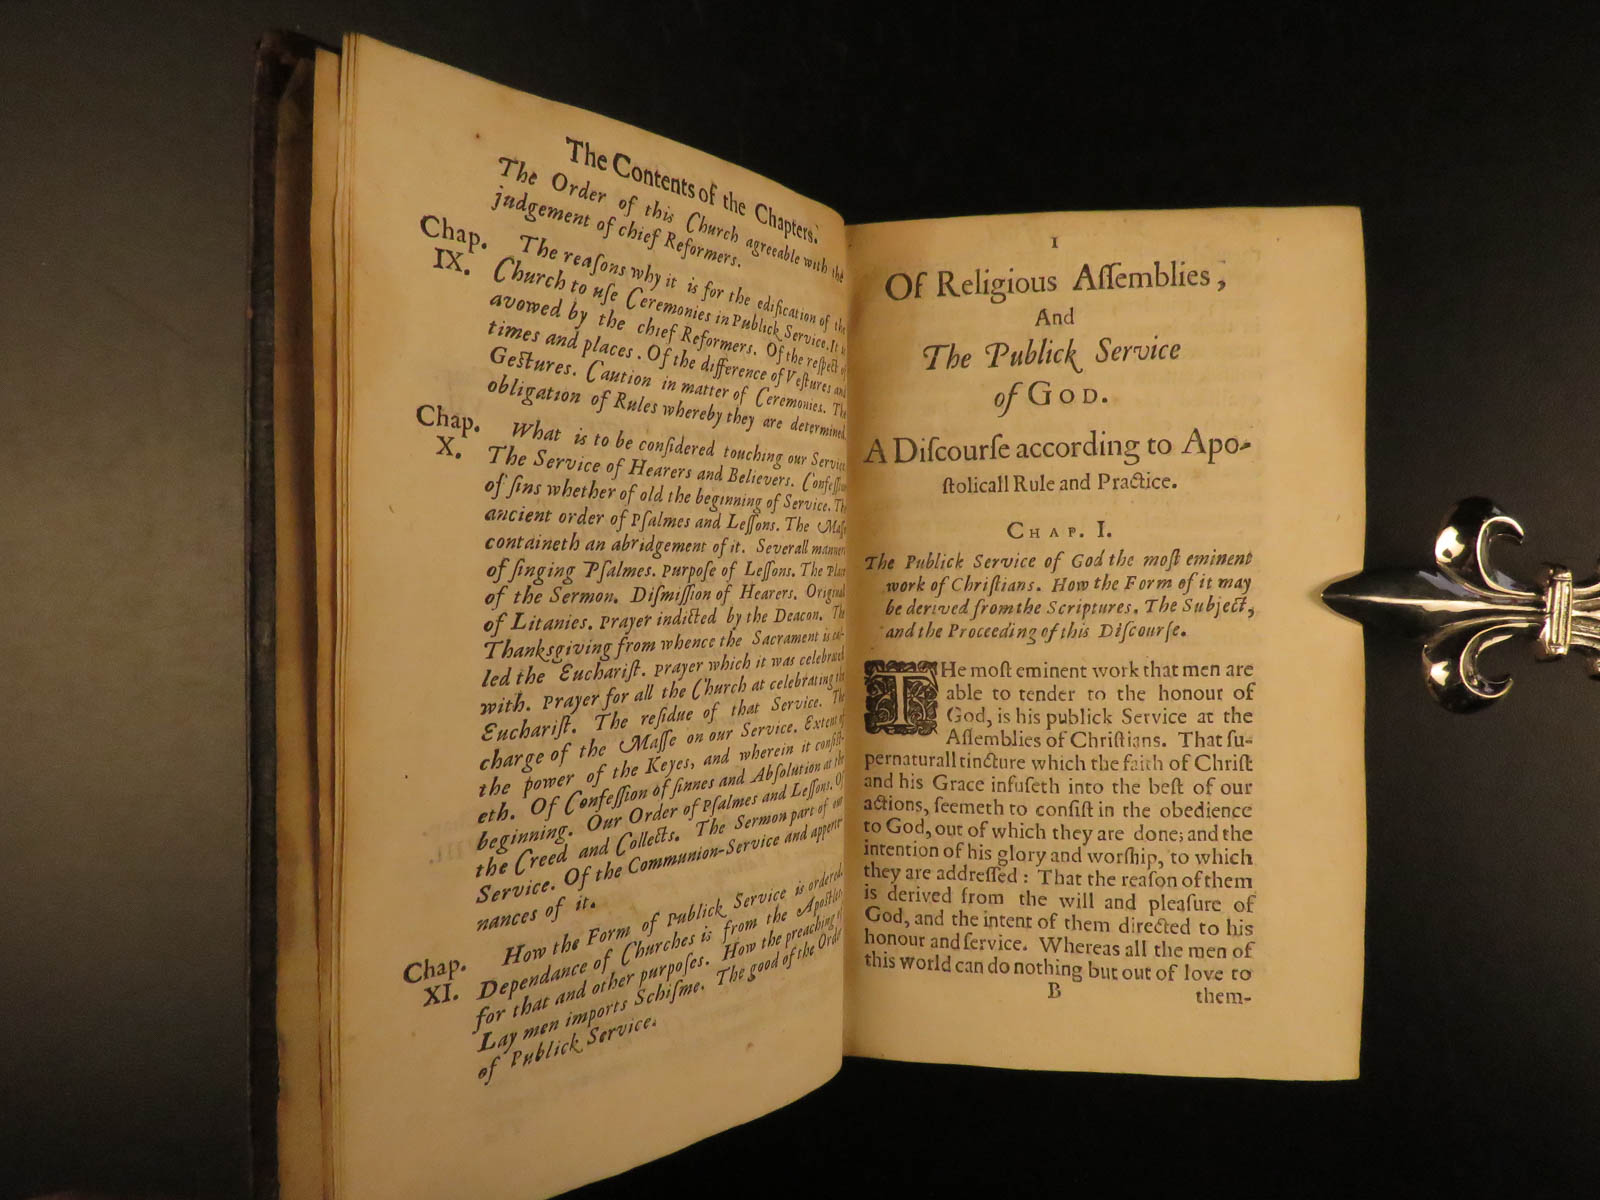 The Contents of the Chapters.
The Order of this Church agreeable with the
judgement of chief Reformers.
Chap. IX. The reaſons why it is for the edification of the
Church to uſe Ceremonies in Publick Service. It is
avowed by the chief Reformers. Of the reſpect of
times and places. Of the difference of Veſtures and
Geſtures. Caution in matter of Ceremonies. The
obligation of Rules whereby they are determined.
Chap. X. What is to be conſidered touching our Service.
The Service of Hearers and Believers. Confeſſion
of ſins whether of old the beginning of Service. The
ancient order of Pſalmes and Leſſons. The Maſſe
containeth an abridgement of it. Severall manners
of ſinging Pſalmes. Purpoſe of Leſſons. The Place
of the Sermon. Diſmiſſion of Hearers. Original
of Litanies. Prayer indicted by the Deacon. The
Thankſgiving from whence the Sacrament is cal-
led the Euchariſt. Prayer which it was celebrated
with. Prayer for all the Church at celebrating the
Euchariſt. The reſidue of that Service. The
charge of the Maſſe on our Service. Extent of
the power of the Keyes, and wherein it conſiſt-
eth. Of Confeſſion of ſinnes and Abſolution at the
beginning. Our Order of Pſalmes and Leſſons. Of
the Creed and Collects. The Sermon part of our
Service. Of the Communion-Service and apperte-
nances of it.
Chap. XI. How the Form of Publick Service is ordered.
Dependance of Churches is from the Apoſtles,
for that and other purpoſes. How the preaching of
Lay men imports Schiſme. The good of the Order
of Publick Service.
1
Of Religious Aſſemblies,
And
The Publick Service
of GOD.
A Diſcourſe according to Apo-
ſtolicall Rule and Practice.
CHAP. I.
The Publick Service of God the moſt eminent
work of Chriſtians. How the Form of it may
be derived from the Scriptures. The Subject,
and the Proceeding of this Diſcourſe.
THe moſt eminent work that men are
able to tender to the honour of
God, is his publick Service at the
Aſſemblies of Chriſtians. That ſu-
pernaturall tincture which the faith of Chriſt
and his Grace infuſeth into the beſt of our
actions, ſeemeth to conſiſt in the obedience
to God, out of which they are done; and the
intention of his glory and worſhip, to which
they are addreſſed: That the reaſon of them
is derived from the will and pleaſure of
God, and the intent of them directed to his
honour and ſervice. Whereas all the men of
this world can do nothing but out of love to
B them-